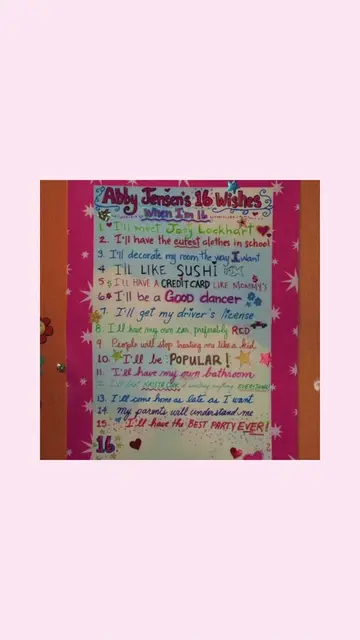 Abby Jensen's 16 Wishes
When I'm 16
1. I'll meet Joey Lockhart
2. I'll have the cutest clothes in school
3. I'll decorate my room the way I want
4. I'll LIKE SUSHI
5. I'll HAVE A CREDIT CARD LIKE MOMMY'S
6. I'll be a GOOD dancer
7. I'll get my driver's license
8. I'll have my own car, preferably RED
9. People will stop treating me like a kid
10. I'll be POPULAR!
11. I'll have my own bathroom
12. I'll
13. I'll come home as late as I want
14. My parents will understand me
15. I'll have the BEST PARTY EVER!
16